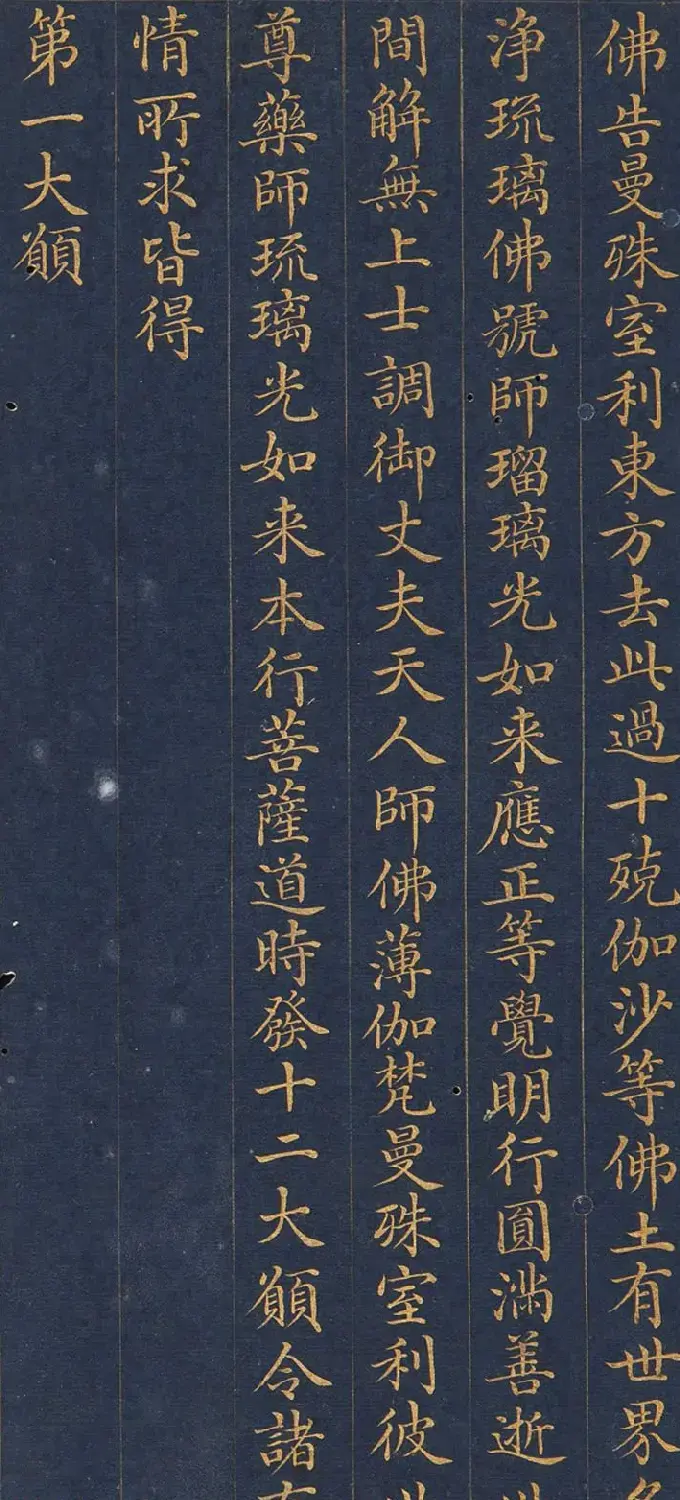 佛告曼殊室利東方去此過十殑伽沙等佛土有世界名
浄琉璃佛號師瑠璃光如来應正等覺明行圎滿善逝世
間解無上士調御丈夫天人師佛薄伽梵曼殊室利彼世
尊藥師琉璃光如来本行菩薩道時發十二大願令諸有
情所求皆得
第一大願